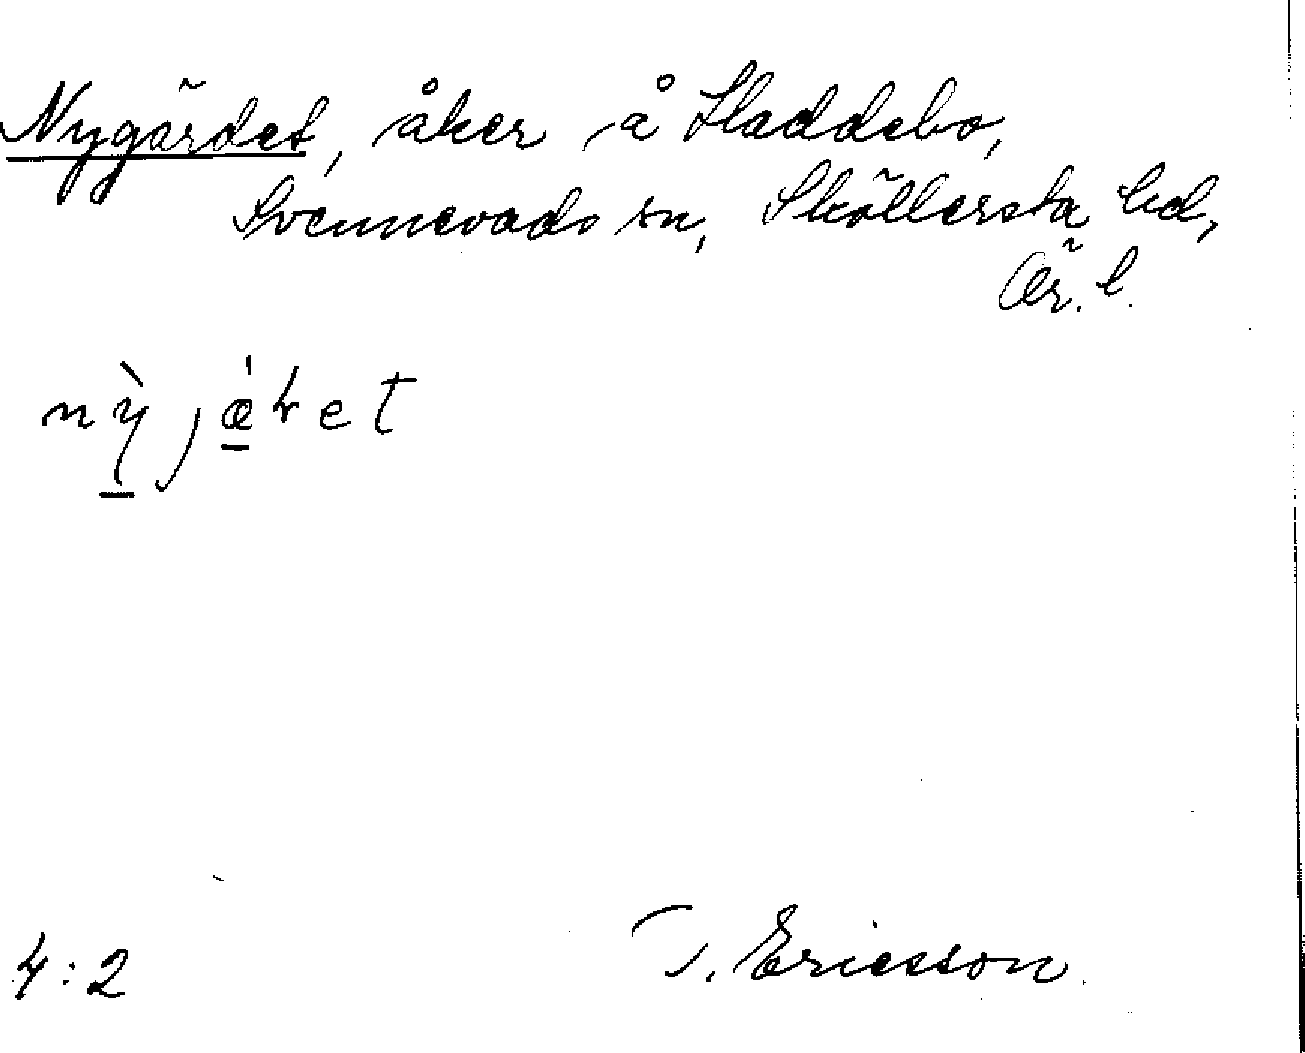 Nygärdet, åker å Sladdebo,
Svennevads sn, Sköllersta hd,
Ör. l.
nỳjæ̀ret
4:2
T. Ericsson.